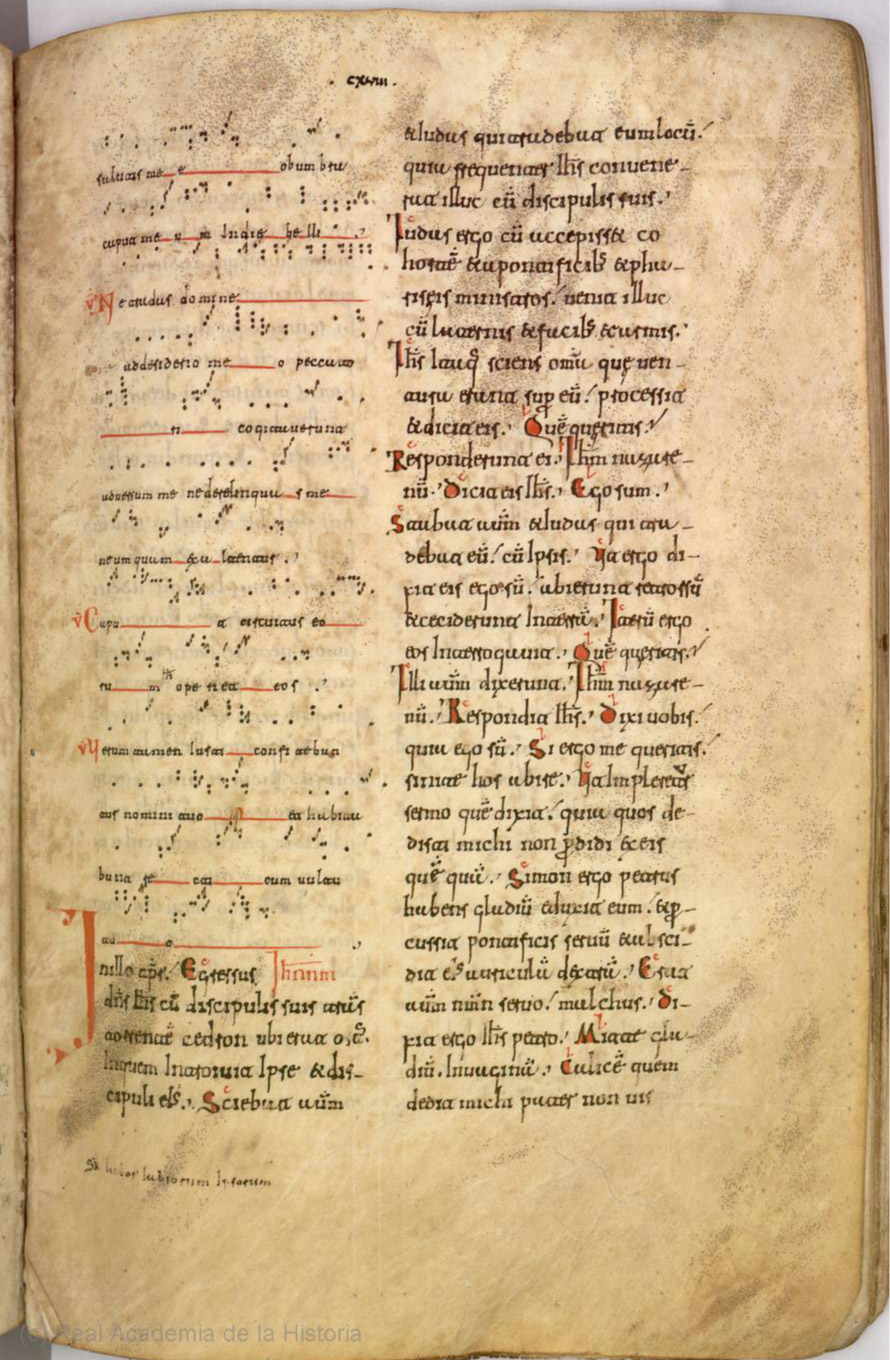 . cxuiii .
salutis me e obumbra
caput me u m In die belli
℣ Ne tradas domine
addesiderio me o peccato
ri cogitauerunt
aduersum me nederelinquas me
neumquam exultentur
℣ Capu t circuitus eo
ru m ope riet eos
℣ Uerumtamen iusti confitebun
tur nomini tuo et habita
bunt re cti cum uultu
tu o
Inillo tp̄r. Egressus Ihm̄
dn̄s ihs̄ cū discipulis suis trans
torrentē cedron ubi erat ortꝰ.
Inquem Introiuit Ipse & dis-
cipuli eiꝰ. Sciebat autm̄
& iudas qui tradebat eum locū
quia frequenter ihs̄ conuene-
rat illuc cū discipulis suis.
Iudas ergo cū accepisset co
hortē & a pontificibꝰ & pha-
riseis ministros. uenit illuc
cū lucernis & facibꝰ & armis.
Ihs̄ itaq; sciens omīa que uen-
tura erant sup̱ eū. processit
& dicit eis. Quē queritis.
Responderunt ei. Ihm̄ nazare-
nū. Dicit eis ihs̄. Ego sum.
Stabat autm̄ & iudas qui tra-
debat eū. cū Ipsis. Vt ergo di-
xit eis ego sū. abierunt retrorsū
& ceciderunt Interrā. Iterū ergo
eos Interrogauit. Quē queritis.
Illi autm̄ dixerunt. Ihm̄ nazare-
nū. Respondit ihs̄. Dixi uobis.
quia ego sū. Si ergo me queritis.
sinite hos abire. Vt Impleretꝰ
sermo quē dixit. quia quos de-
disti michi non p̱didi ex eis
quē quā. Simon ergo petrus
habens gladiū eduxit eum. & p̱-
cussit pontificis seruū & absci-
dit eiꝰ auriculā dexterā. Erat
autm̄ nm̄n seruo. malchus. Di-
xit ergo ihs̄ petro. Mitte gla-
diū. Inuaginā. Calicē quem
dedit michi pater non uis